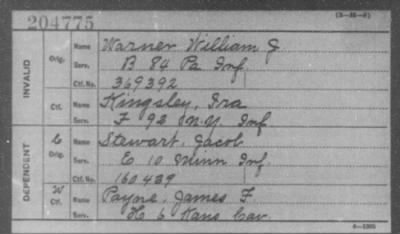 204775
(3-26-6)
INVALID
Orig. Name Warner William J.
Serv. B 84 Pa Inf.
Ctf. No. 369392
Ctf. Name Kingsley, Ira
Serv. F 92 N.Y. Inf
DEPENDENT
C Orig. Name Stewart, Jacob
Serv. E 10 Minn Inf.
Ctf. No. 160439
W Ctf. Name Payne, James F
Serv. H 6 Kans Cav.